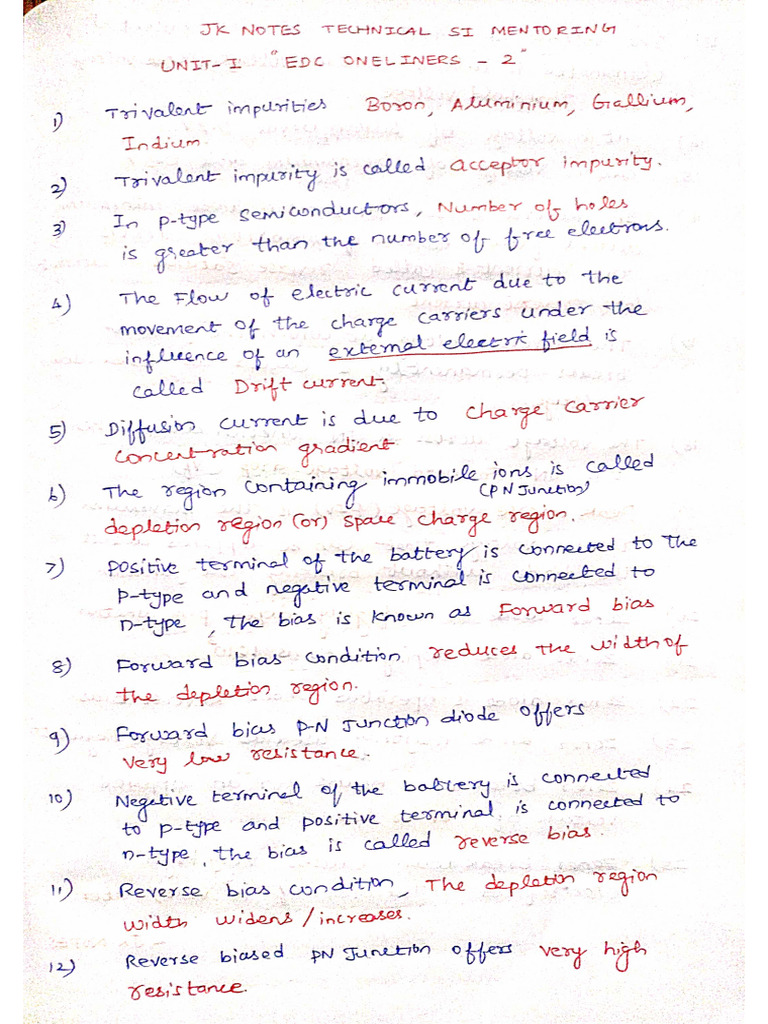 JK NOTES TECHNICAL SI MENTORING
UNIT-I "EDC ONELINERS - 2"
1) Trivalent impurities Boron, Aluminium, Gallium,
Indium.
2) Trivalent impurity is called Acceptor impurity.
3) In P-type semiconductors, Number of holes
is greater than the number of free electrons.
4) The Flow of electric current due to the
movement of the charge carriers under the
influence of an external electric field is
called Drift current.
5) Diffusion current is due to charge carrier
concentration gradient
6) The region containing immobile ions is called
(PN Junction)
depletion region (or) space charge region.
7) Positive terminal of the battery is connected to the
P-type and negative terminal is connected to
n-type, the bias is known as Forward bias
8) Forward bias condition reduces the width of
the depletion region.
9) Forward bias P-N Junction diode offers
very low resistance.
10) Negetive terminal of the battery is connected
to p-type and positive terminal is connected to
n-type, the bias is called reverse bias.
11) Reverse bias condition, The depletion region
width widens/increases.
12) Reverse biased PN Junction offers very high
resistance.